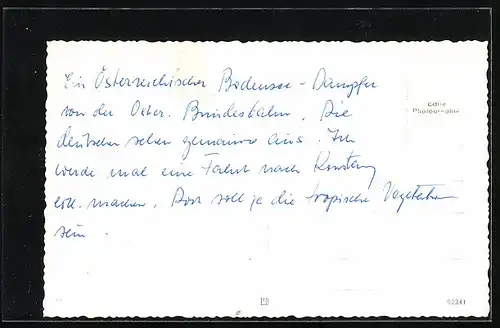 Ein Österreichischer Bodensee-Dampfer
von der Oster. Bundesbahn. Die
deutschen sehen genauso aus. Ich
werde mal eine Fahrt nach Konstanz
evtl. machen. Dort soll ja die tropische Vegetation
sein.
Echte
Photographie
92241